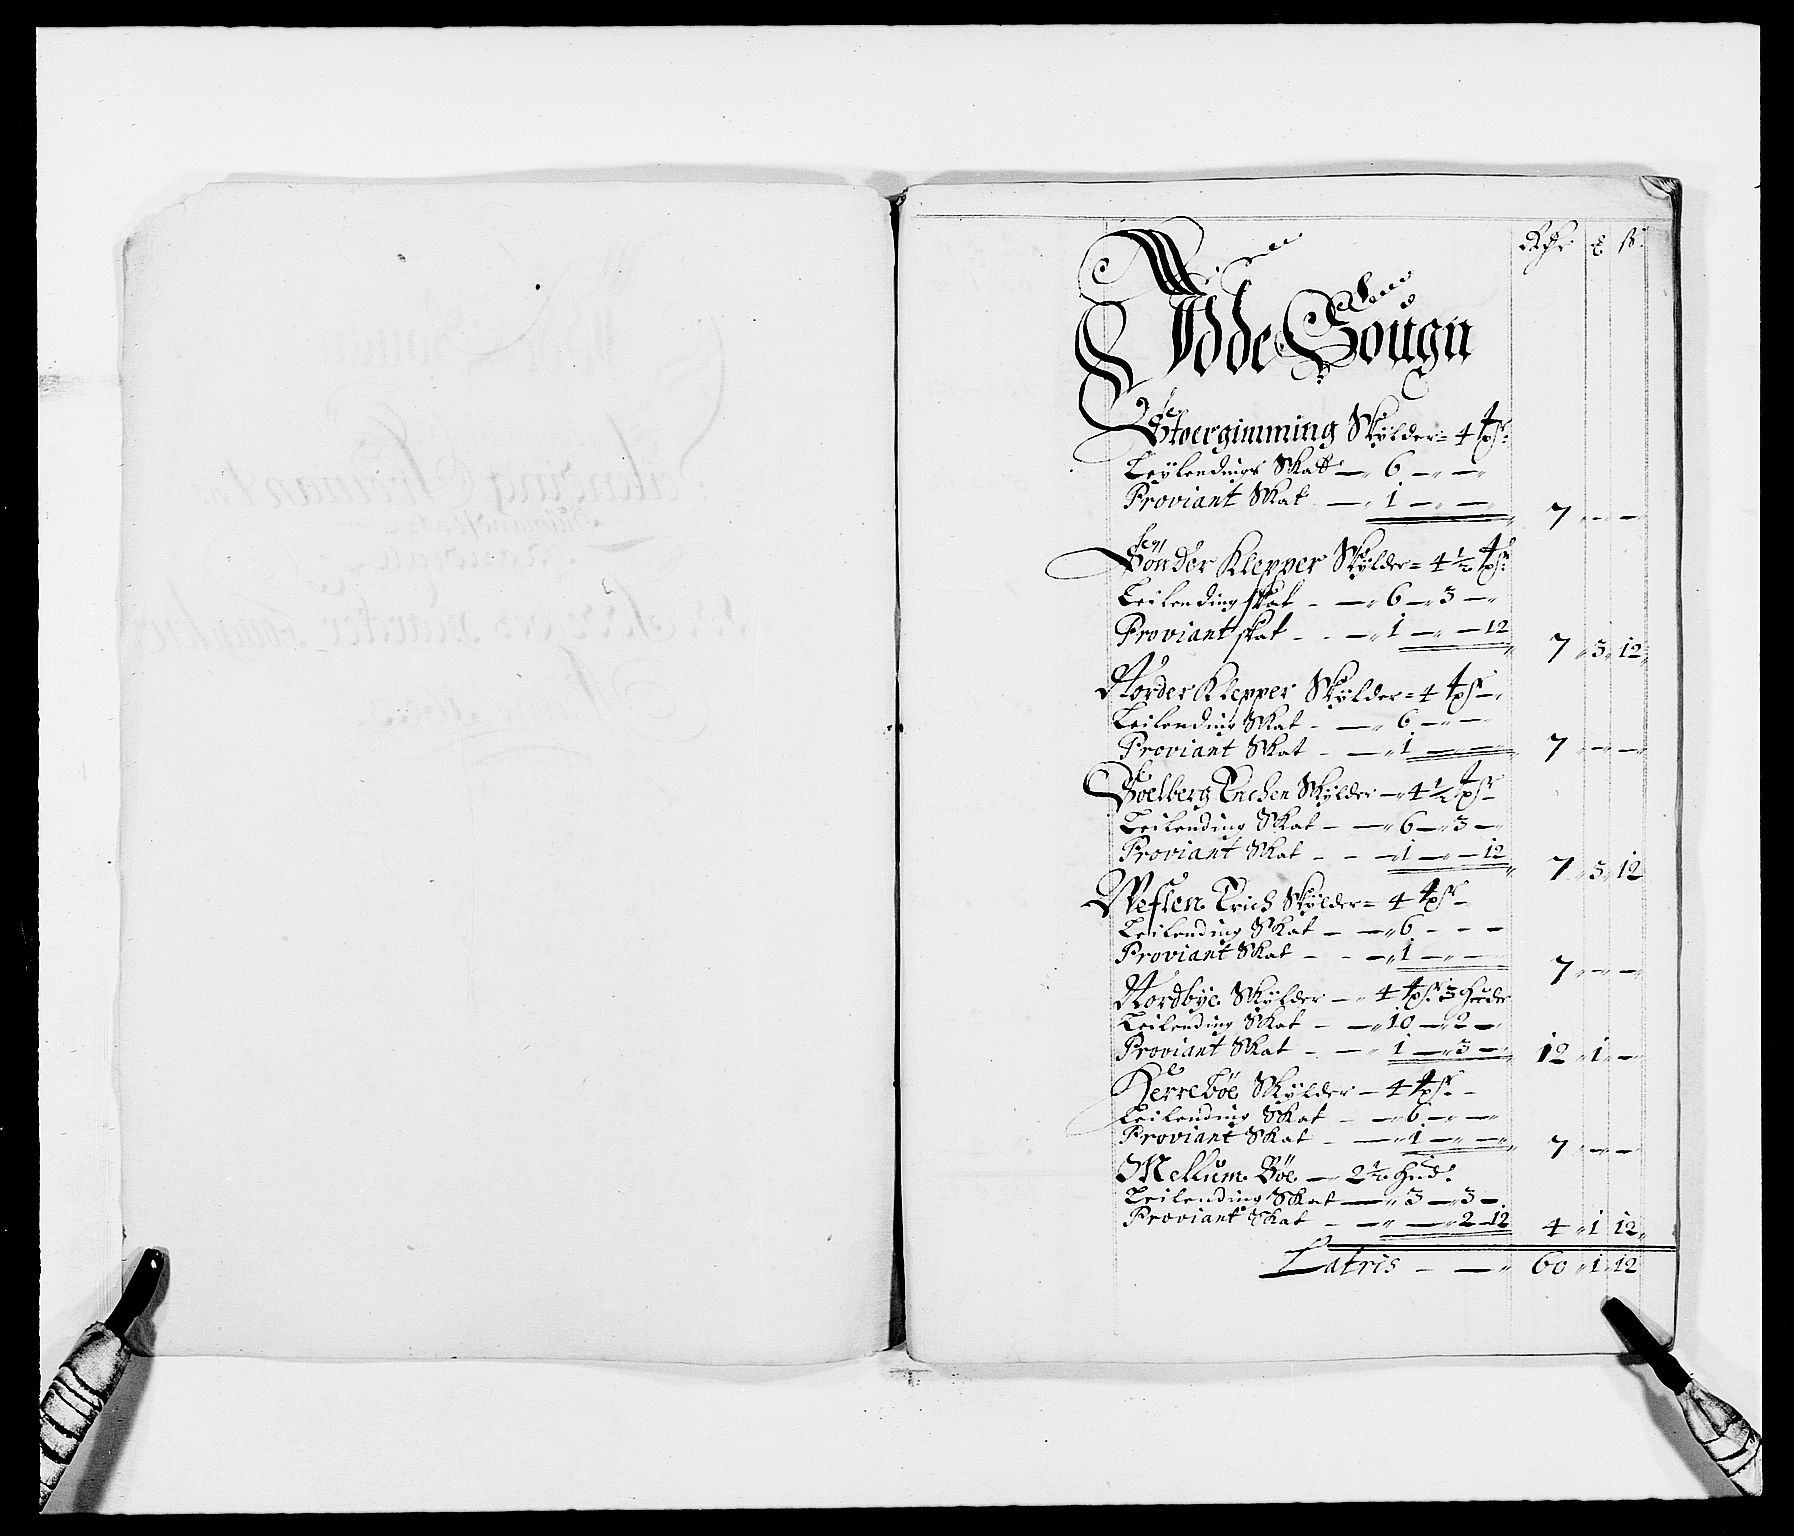 Rdr ₰ ß
Idde Sougn
Stoergimming Skÿlder = 4 tpſr
Leÿlendings Skatt — „ 6 — „ —
Proviant Skat — „ 1 — „ — „ 7 „ — „ —
Sønder Klepper Skÿlder = 4 ½ tpſr
Leilending skat - — „ 6 — „ 3 — „
Proviant skat - - — „ 1 — „ — 12 „ 7 „ 3 „ 12 „
Norder Klepper Skÿlder = 4 tpſr — „
Leilending Skat - — „ 6 — „ —
Proviant Skat - — „ 1 — „ — „ 7 „ — „ —
Boelberg Enchen Skÿlder — „ 4 ½ tpſr —
Leilending Skat - — „ 6 — „ 3 — „
Proviant Skat - - — „ 1 — „ — 12 „ 7 „ 3 „ 12
Weflen Erich Skÿlder = 4 tpſr —
Leilending Skat - — „ 6 - - —
Proviant Skat - - — „ 1 — „ — „ 7 „ — „ —
Nordbÿe Skÿlder — „ 4 tpſr 3 Huder
Leilending Skat - — „ 10 — „ 2 — „
Proviant Skat - — „ 1 — „ 3 — „ 12 „ 1 „ —
Kerrebøe Skÿlder — 4 tpſr -
Leilending Skat - — „ 6 — „ — „
Proviant Skat - — „ 1 — „ — „ 7 „ — „ —
Mellum Bøe — „ 2 ½ Hud:
Leilending Skat — „ 3 — „ 3 — „
Proviant Skat - — „ — „ 2 — 12 4 „ 1 „ 12 „
Latris - — „ 60 „ 1 „ 12